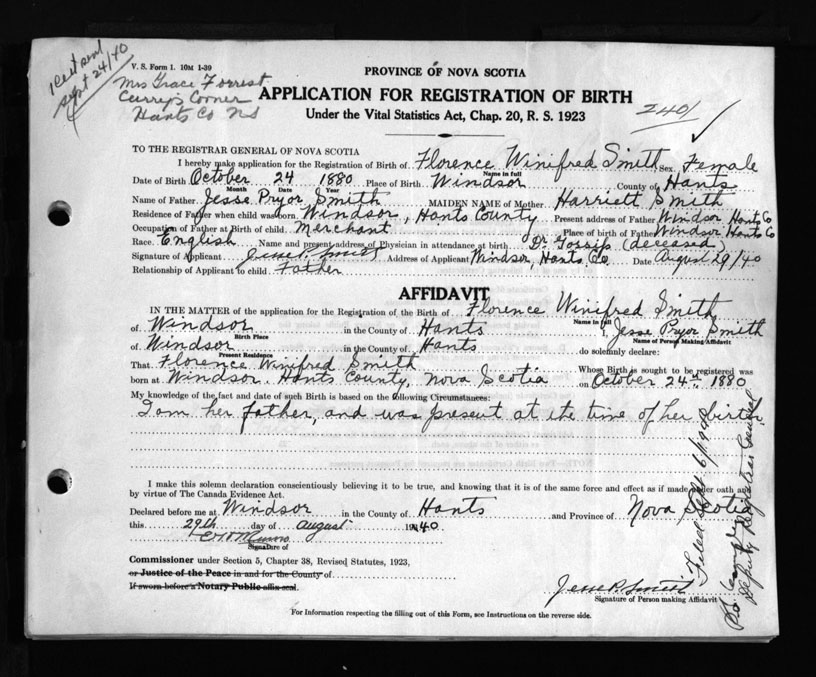 1 Cert sent
Sept 24/40
V. S. Form 1. 10M 1-39
Mrs Grace Forrest
Curry's Corner
Hants Co NS
PROVINCE OF NOVA SCOTIA
APPLICATION FOR REGISTRATION OF BIRTH
Under the Vital Statistics Act, Chap. 20, R. S. 1923
2401
TO THE REGISTRAR GENERAL OF NOVA SCOTIA
I hereby make application for the Registration of Birth of Florence Winifred Smith Sex Female
Name in full
Date of Birth October 24 1880 Place of Birth Windsor County of Hants
Month Date Year
Name of Father Jesse Pryor Smith MAIDEN NAME of Mother Harriett Smith
Residence of Father when child was born Windsor, Hants County Present address of Father Windsor Hants Co
Occupation of Father at Birth of child Merchant Place of birth of Father Windsor Hants Co
Race English Name and present address of Physician in attendance at birth Dr Gossip (deceased)
Signature of Applicant Jesse P. Smith Address of Applicant Windsor, Hants, Co. Date August 29/40
Relationship of Applicant to child Father
AFFIDAVIT
IN THE MATTER of the application of the Registration of the Birth of Florence Winifred Smith
Name in full
of Windsor in the County of Hants I, Jesse Pryor Smith
Birth Place Name of Person Making Affidavit
of Windsor in the County of Hants do solemnly declare:
Present Residence
That Florence Winifred Smith Whose Birth is sought to be registered was
born at Windsor, Hants County, Nova Scotia on October 24th 1880
My knowledge of the fact and date of such Birth is based on the following Circumstances:
I am her father, and was present at the time of her birth.
I make this solemn declaration conscientiously believing it to be true, and knowing that it is of the same force and effect as if made under oath and
by virtue of The Canada Evidence Act.
Declared before me at Windsor in the County of Hants and Province of Nova Scotia
this 29th day of August 1940
Signature of
Commissioner under Section 5, Chapter 38, Revised Statutes, 1923,
or Justice of the Peace in and for the County of
If sworn before a Notary Public affix seal.
Jesse P. Smith
Signature of Person making Affidavit
For Information respecting the filling out of this Form, see Instructions on the reverse side.
Filed Sept 6/1940
Deputy Registrar General